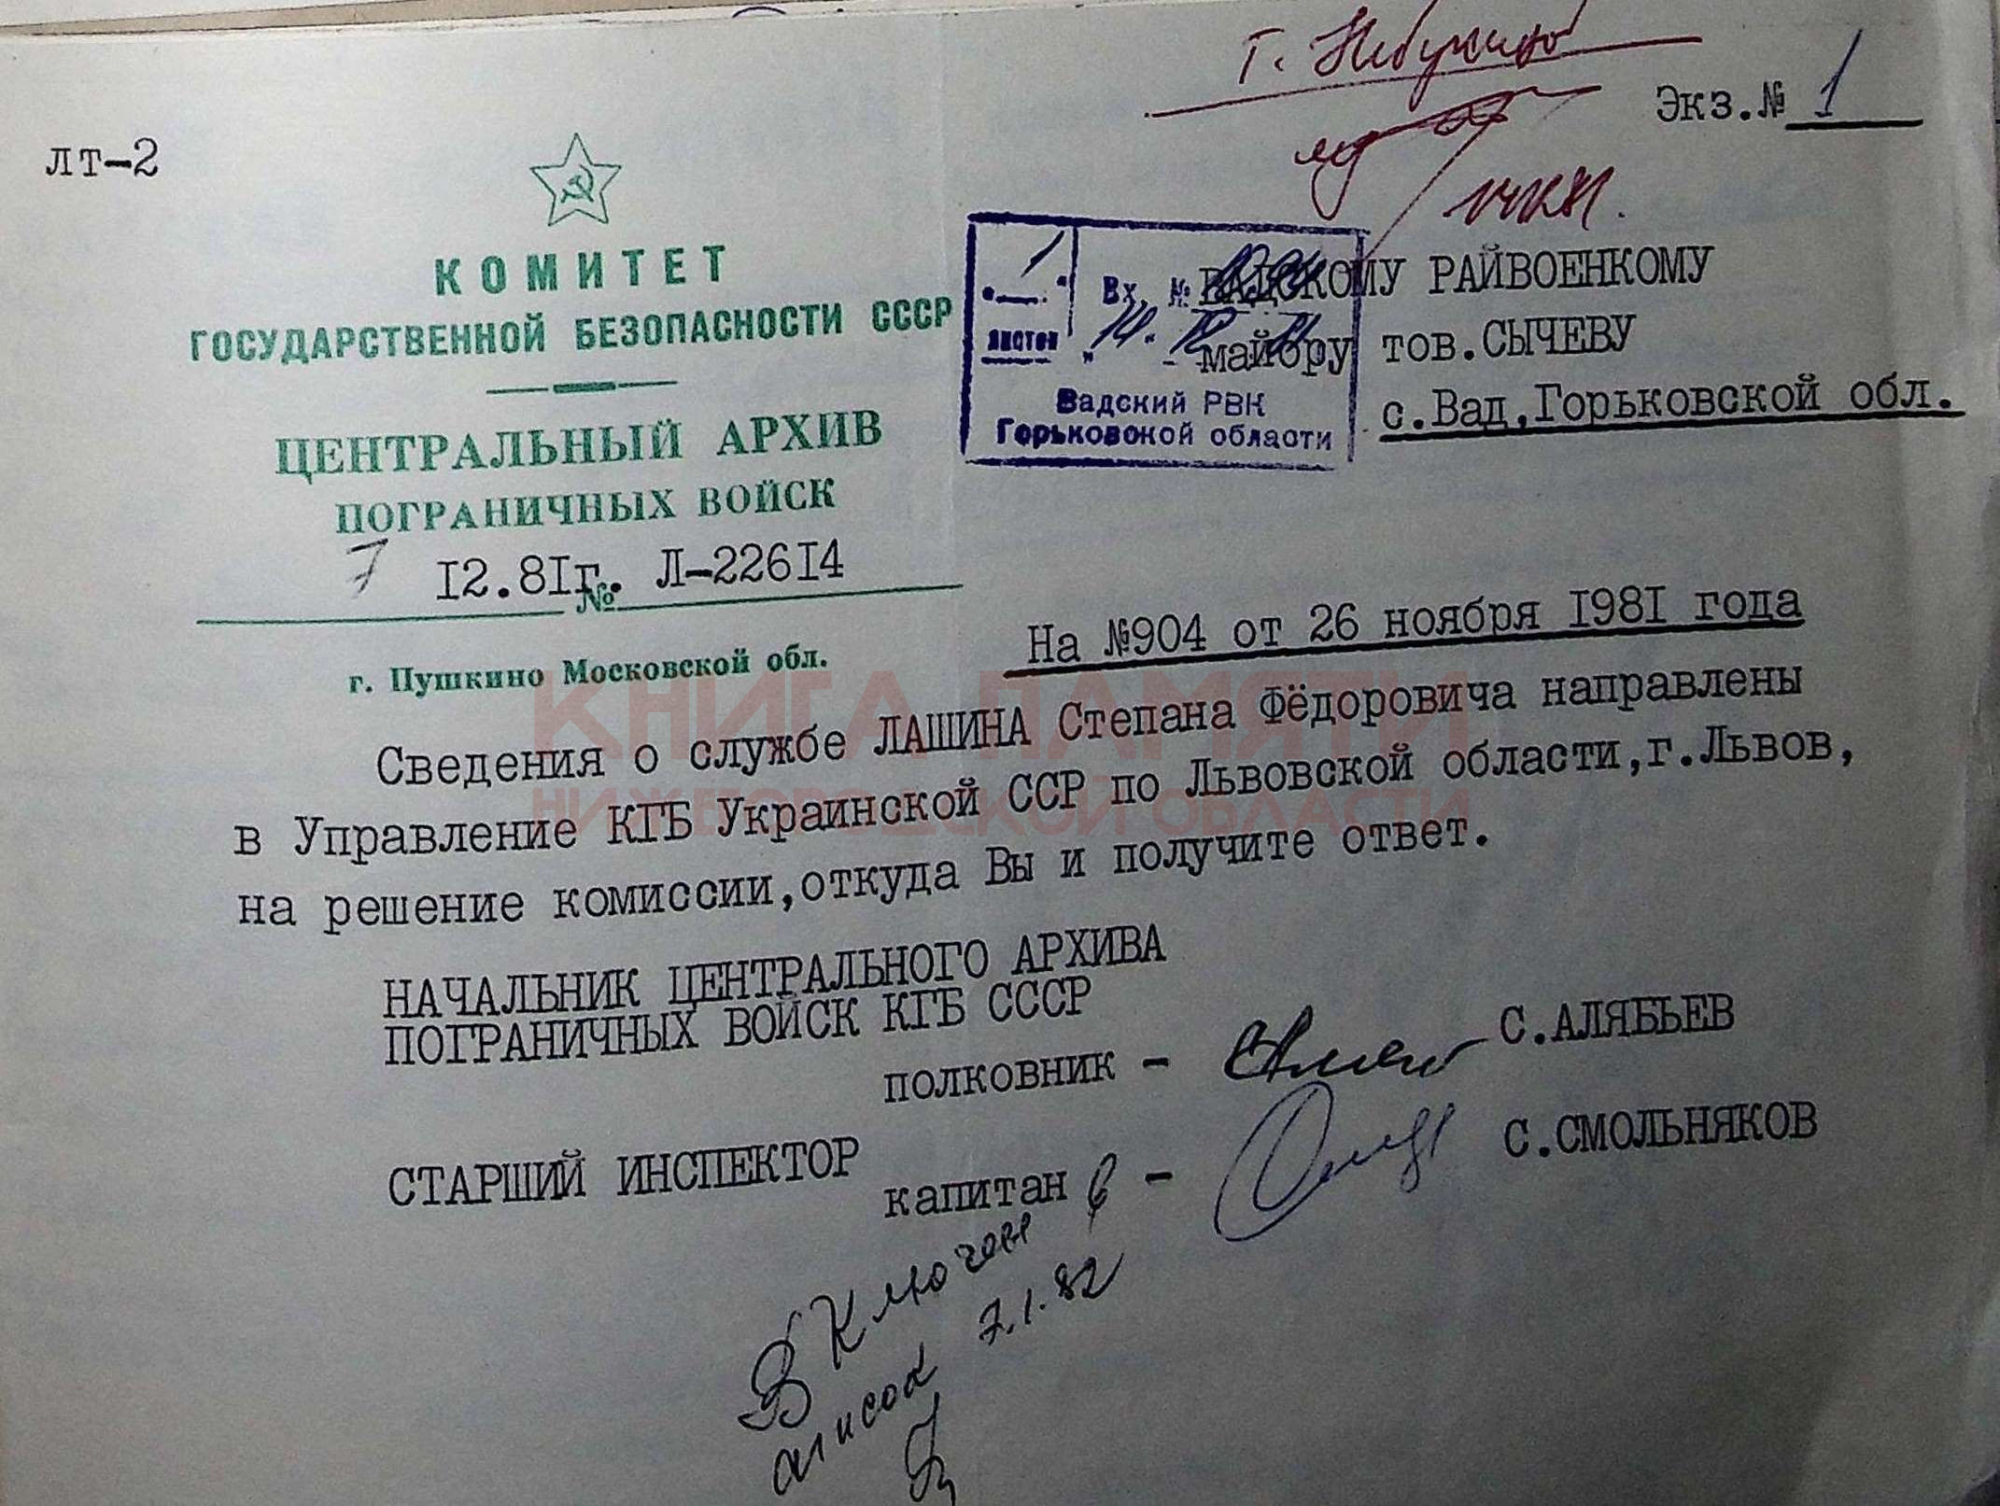 Экз.№ 1
лт-2
КОМИТЕТ
ГОСУДАРСТВЕННОЙ БЕЗОПАСНОСТИ СССР
ЦЕНТРАЛЬНЫЙ АРХИВ
ПОГРАНИЧНЫХ ВОЙСК
7 I2.8Iг. № Л-226I4
г. Пушкино Московской обл.
1
листов
Вх. №
14.12.81
Вадский РВК
Горьковской области
ВАДСКОМУ РАЙВОЕНКОМУ
майору тов.СЫЧЕВУ
с.Вад,Горьковской обл.
На №904 от 26 ноября I98I года
Сведения о службе ЛАШИНА Степана Фёдоровича направлены
в Управление КГБ Украинской ССР по Львовской области,г.Львов,
на решение комиссии,откуда Вы и получите ответ.
КНИГА ПАМЯТИ
НИЖЕГОРОДСКОЙ ОБЛАСТИ
НАЧАЛЬНИК ЦЕНТРАЛЬНОГО АРХИВА
ПОГРАНИЧНЫХ ВОЙСК КГБ СССР
полковник - С.АЛЯБЬЕВ
СТАРШИЙ ИНСПЕКТОР
капитан - С.СМОЛЬНЯКОВ
Включен в
список 7.1.82